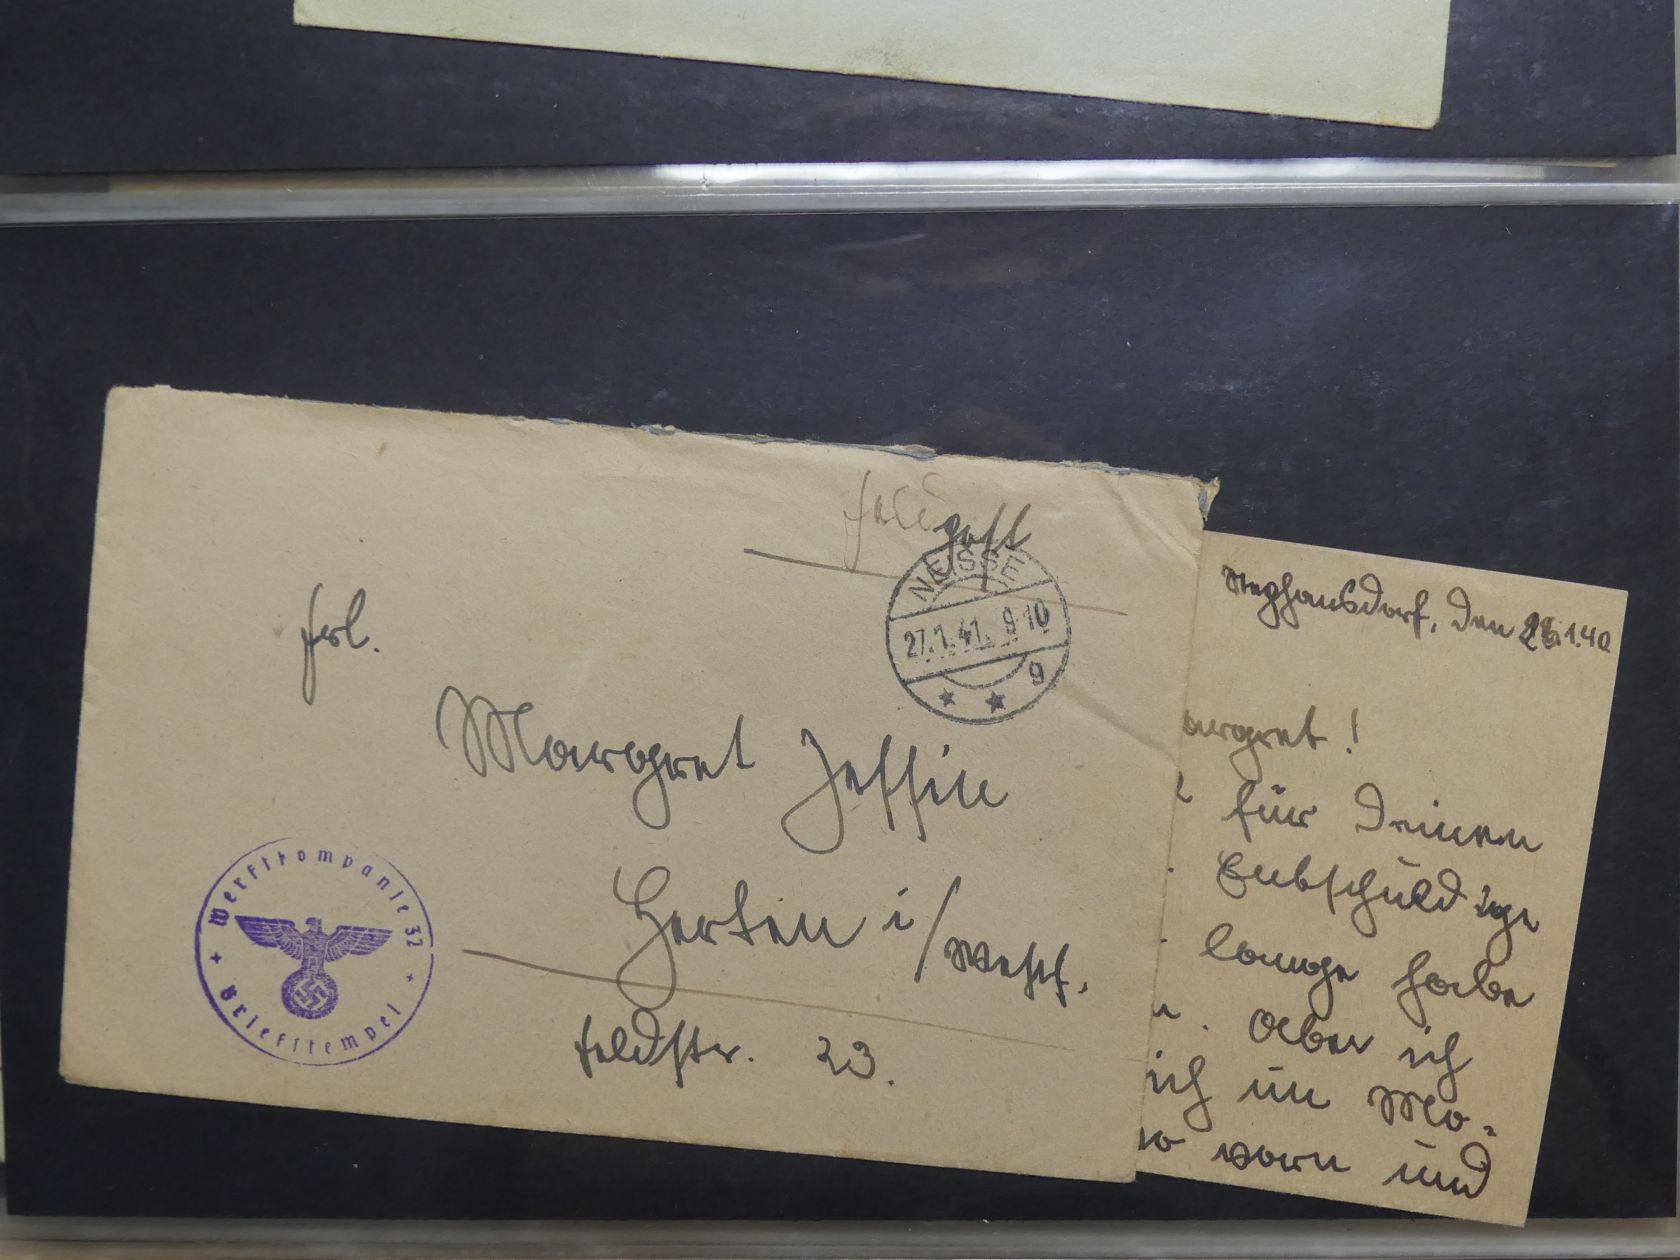 Feldpost
NEISSE
27.1.41. 9-10
g
Frl.
Margret Jessin
Herten i/Westf.
Feldstr. 23.
Werftkompanie 32
Briefstempel
Stephansdorf, den 26.1.40
argret!
für Deinen
Entschuldige
lange habe
. Aber ich
ich im Mo-
vorn und